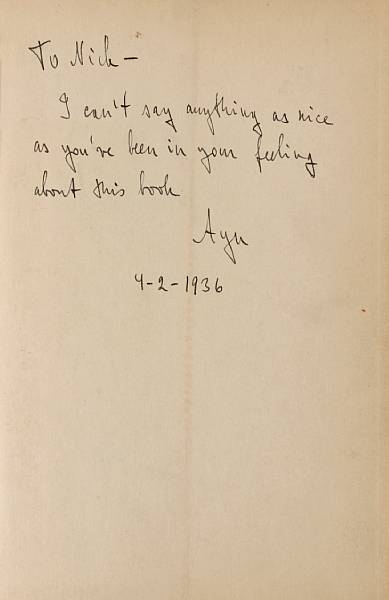 To Nick –
I can't say anything as nice
as you've been in your feeling
about this book
Ayn
4-2-1936